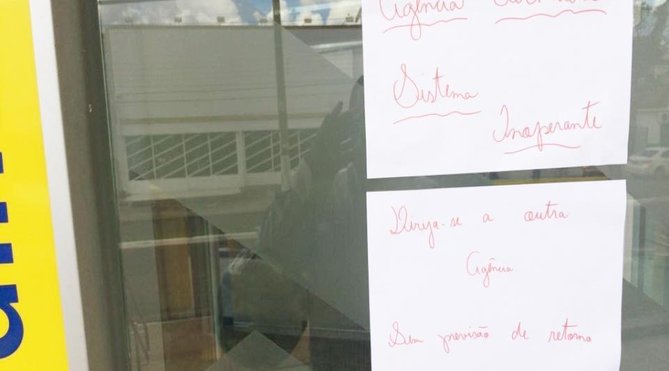 Agência
Sistema
Inoperante
Dirija-se a outra
Agência
Sem previsão de retorno